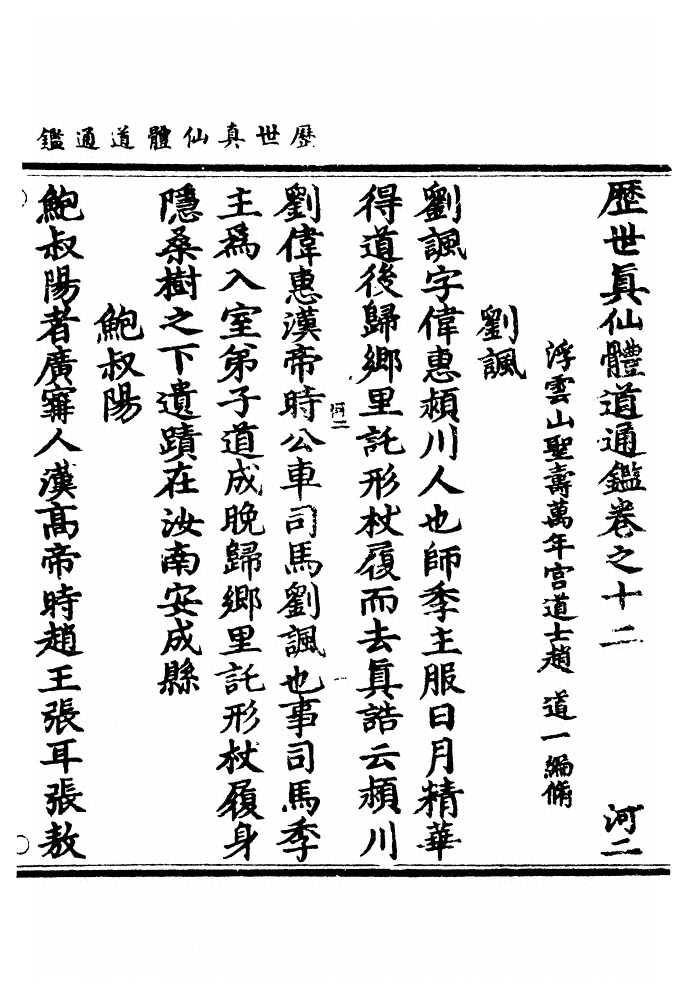 歷世真仙體道通鑑
歷世真仙體道通鑑卷之十二　河二
浮雲山聖壽萬年宮道士趙道一編脩
劉諷
劉諷字偉惠潁川人也師季主服日月精華
得道後歸鄉里託形杖履而去真誥云潁川
河二
劉偉惠漢帝時公車司馬劉諷也事司馬季
主爲入室弟子道成晚歸鄉里託形杖履身
隱桑樹之下遺蹟在汝南安成縣
鮑叔陽
鮑叔陽者廣甯人漢高帝時趙王張耳張敖